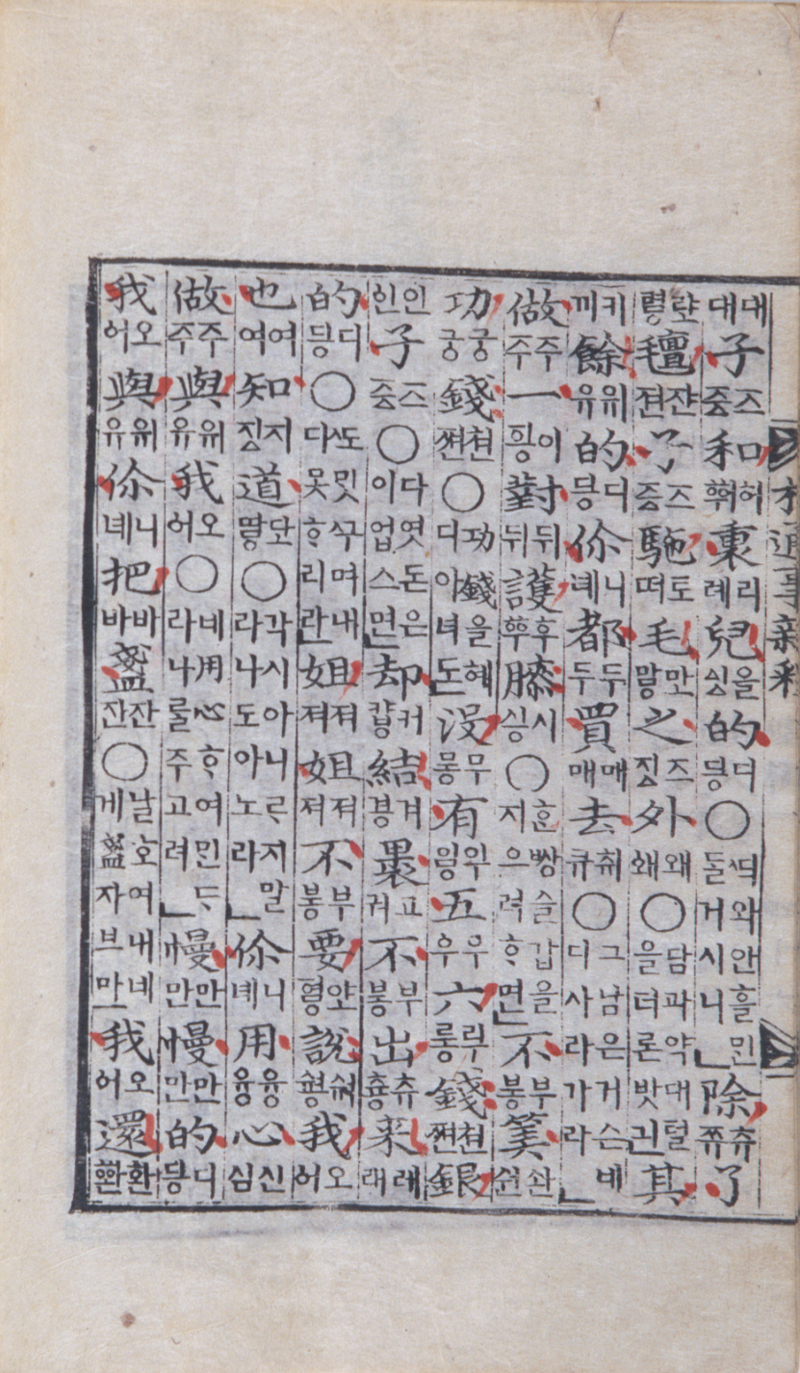 朴通事新釋
대대子즁즈和훠허裏례리兒싱을的딍디○ᄯᅴ와안흘민돌거시니」除쮸츄了
령랸氈젼쟌子즁즈駞떠토毛맣만之징즈外왜왜○담과약대털을더론밧긔其
끼키餘유위的딍디你녜니都두두買매매去큐취○그남은거슨네디사라가라」
做주주一힝이對뒤뒤護ᅘᅮ후膝싱시○ᄒᆞᆫ빵슬갑을지으려ᄒᆞ면」不붕부筭숸솬
功궁궁錢쪈쳔○功錢을혜디아녀도」沒뭉무有잉위五우우六룽루錢쪈쳔銀
인인子즁즈○다엿돈은이업스면」却캉커結경겨裹궈고不붕부出츙츄來래레
的딍디○ᄯᅩ밋구며내다못ᄒᆞ리란」姐져져姐져져不붕부要ᅙᅣᇢ얀說ᄉᆑᆼ숴我어오
也여여知징지道땋단○각시아니ᄅᆞ지말라나도아노라」你녜니用융융心심신
做주주與유위我어오○네用心ᄒᆞ여민ᄃᆞ라나룰주고려」慢만만慢만만的딍디
我어오與유위你녜니把바바盞잔잔○날호여내네게盞자브마」我어오還ᅘᅪᆫ환